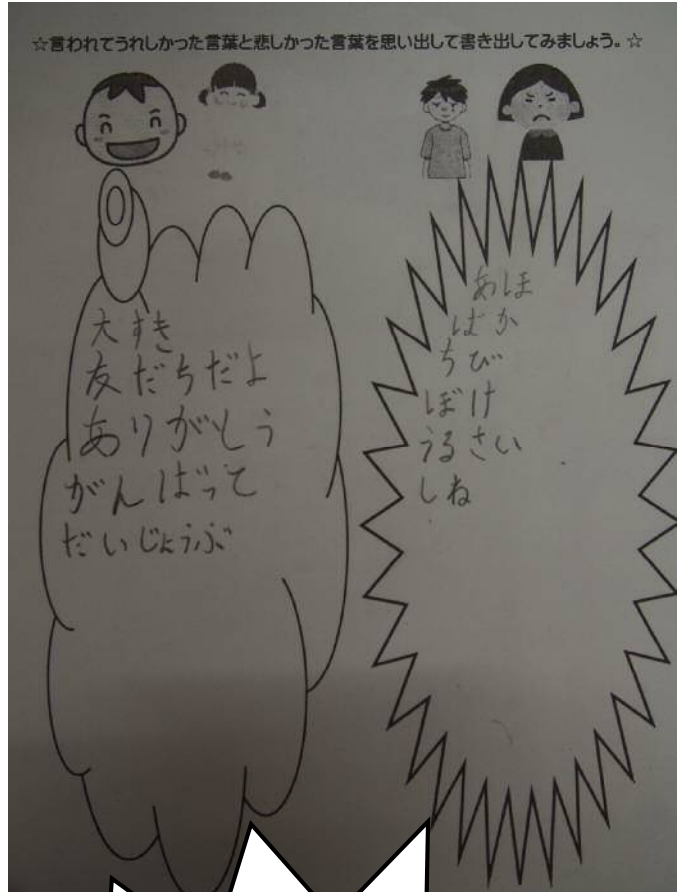 ☆言われてうれしかった言葉と悲しかった言葉を思い出して書き出してみましょう。☆
大すき
友だちだよ
ありがとう
がんばって
だいじょうぶ
あほ
ばか
ちび
ぼけ
うるさい
しね